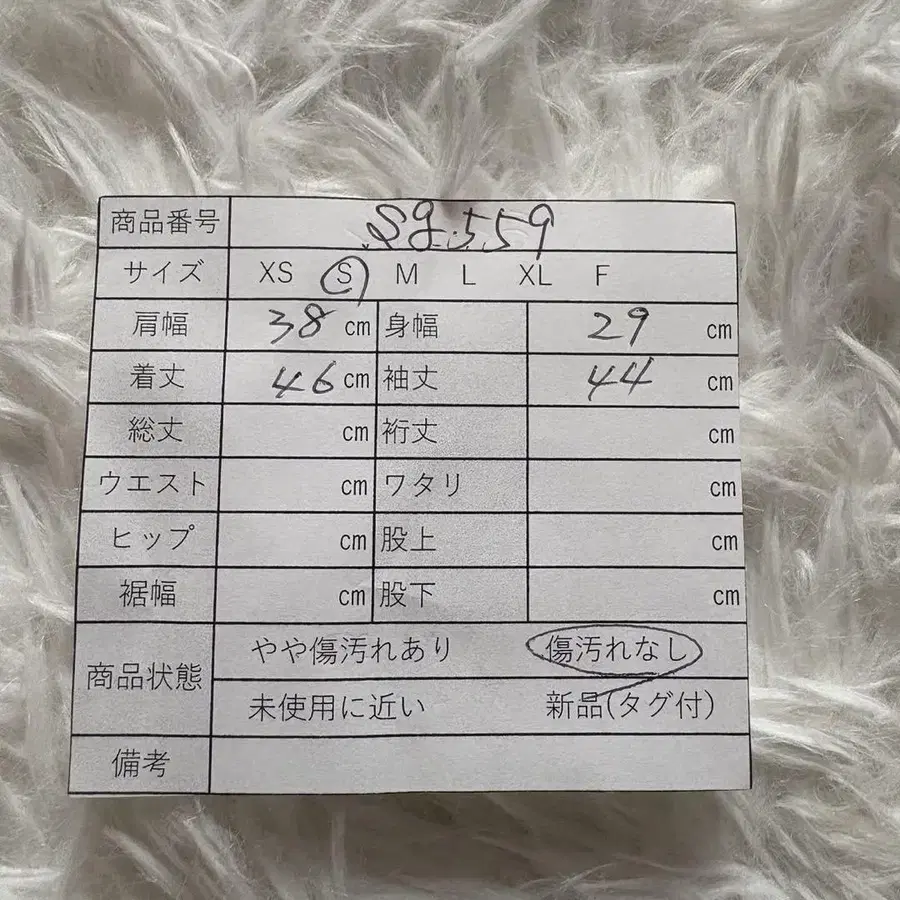 商品番号 Sg.559
サイズ XS S M L XL F
肩幅 38 cm 身幅 29 cm
着丈 46 cm 袖丈 44 cm
総丈 cm 裄丈 cm
ウエスト cm ワタリ cm
ヒップ cm 股上 cm
裾幅 cm 股下 cm
商品状態 やや傷汚れあり 傷汚れなし
未使用に近い 新品(タグ付)
備考